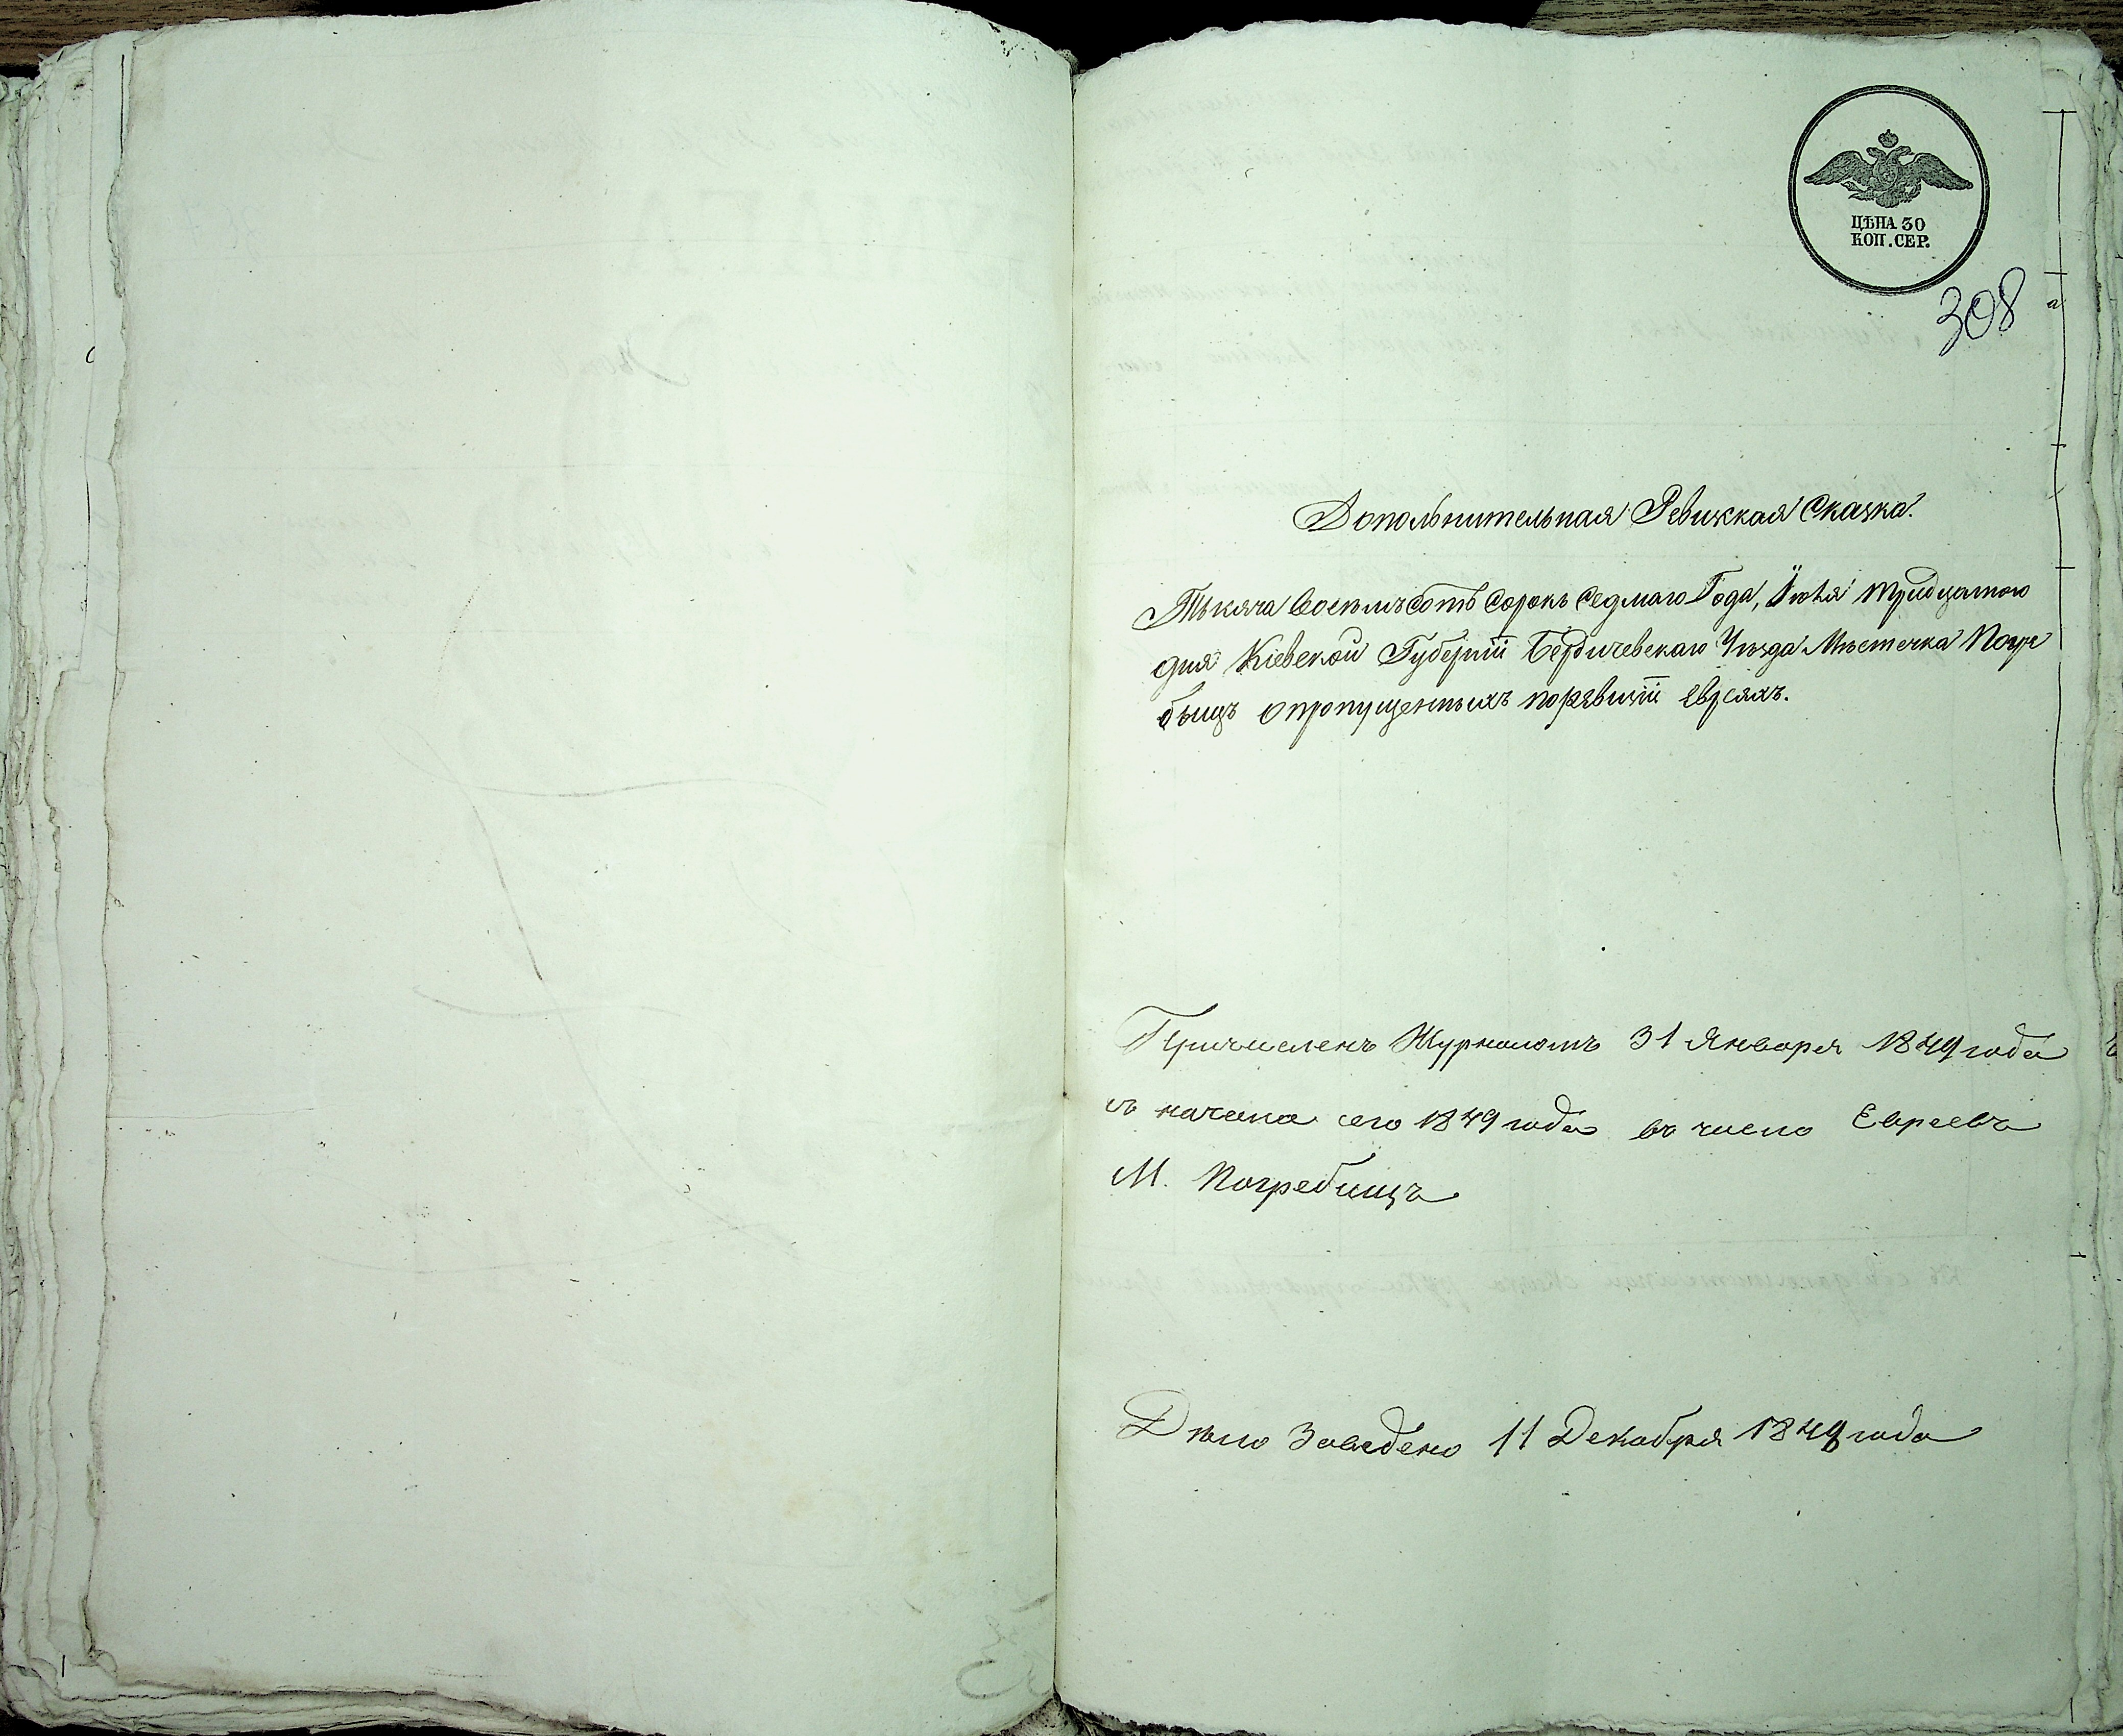 ЦѢНА 30
КОП. СЕР.
308
Дополнительная Ревизкая Сказка.
Тысяча Восемъсотъ Сорокъ Седмаго Года, Іюля тридцатого
дня Кіевской Губерніи Бердичевскаго Уѣзда Мѣстечка Погре
бищъ опропущенныхъ поревизіи Евреяхъ.
Причисленъ Журналомъ 31 Января 1849 года
съ начала сего 1849 года въ число Евреевъ
М. Погребищъ
Дѣло Заведено 11 Декабря 1848 года